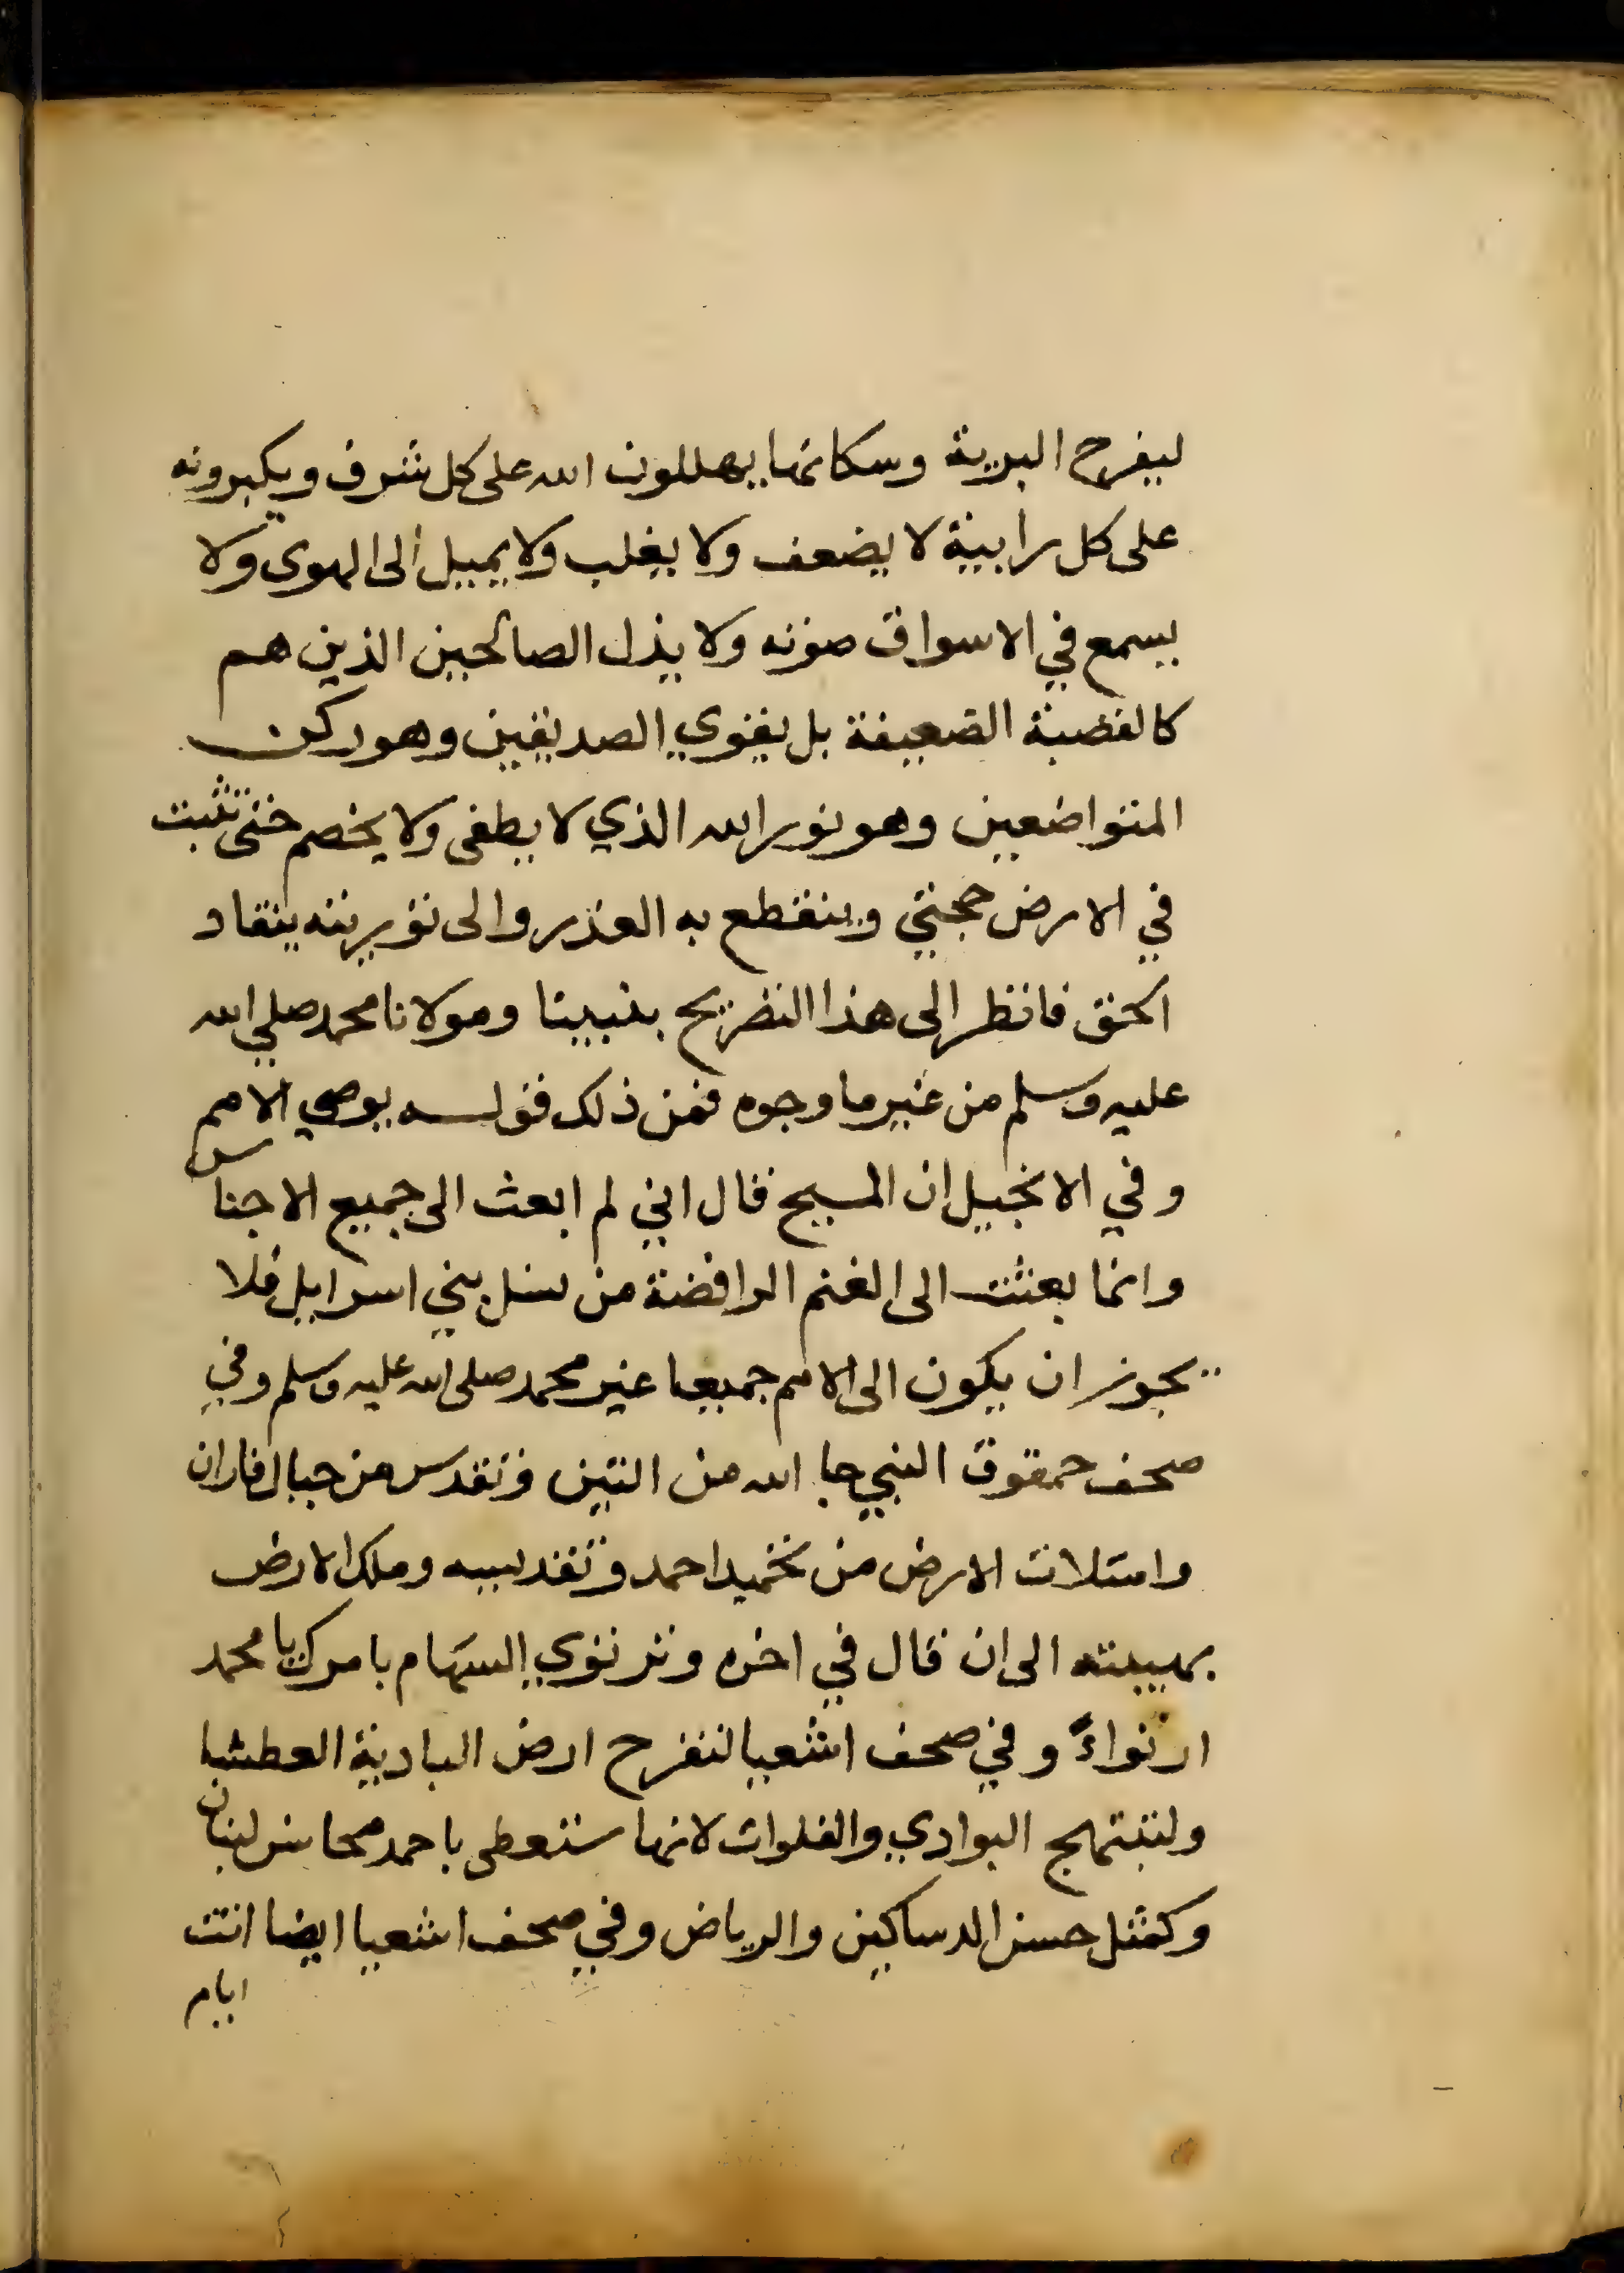 ليفرح البرية وسكانها يهللون الله على كل شرف ويكبرونه
على كل رابية لا يضعف ولا يغلب ولا يميل الى الهوى ولا
يسمع في الاسواق صوته ولا يذل الصالحين الذين هم
كالقصبة الضعيفة بل يقوي الصديقين وهو ركن
المتواضعين وهو نور الله الذي لا يطفى ولا يخصم حتى تثبت
في الارض حجتي وينقطع به العذر والى توريته ينقاد
الحق فانظر الى هذا التصريح بنبينا ومولانا محمد صلي الله
عليه وسلم من غير ما وجوه فمن ذلك قوله يوصي الامم
وفي الانجيل ان المسيح قال اني لم ابعث الى جميع الاجناس
وانما بعثت الى الغنم الرافضة من نسل بني اسرايل فلا
يجوز ان يكون الى الامم جميعا غير محمد صلى الله عليه وسلم وفي
صحف حمقوق النبي جا الله من التين وتقدس من جبال فاران
وامتلات الارض من تحميد احمد وتقديسه وملك الارض
بهيبته الى ان قال في اخره وترتوي السهام بامرك يا محمد
ارتواءً وفي صحف اشعيا لتفرح ارض البادية العطشا
ولتبتهج البوادي والفلوات لانها ستعطى باحمد محاسن لبنان
وكمثل حسن الدساكين والرياض وفي صحف اشعيا ايضا اتت
ايام